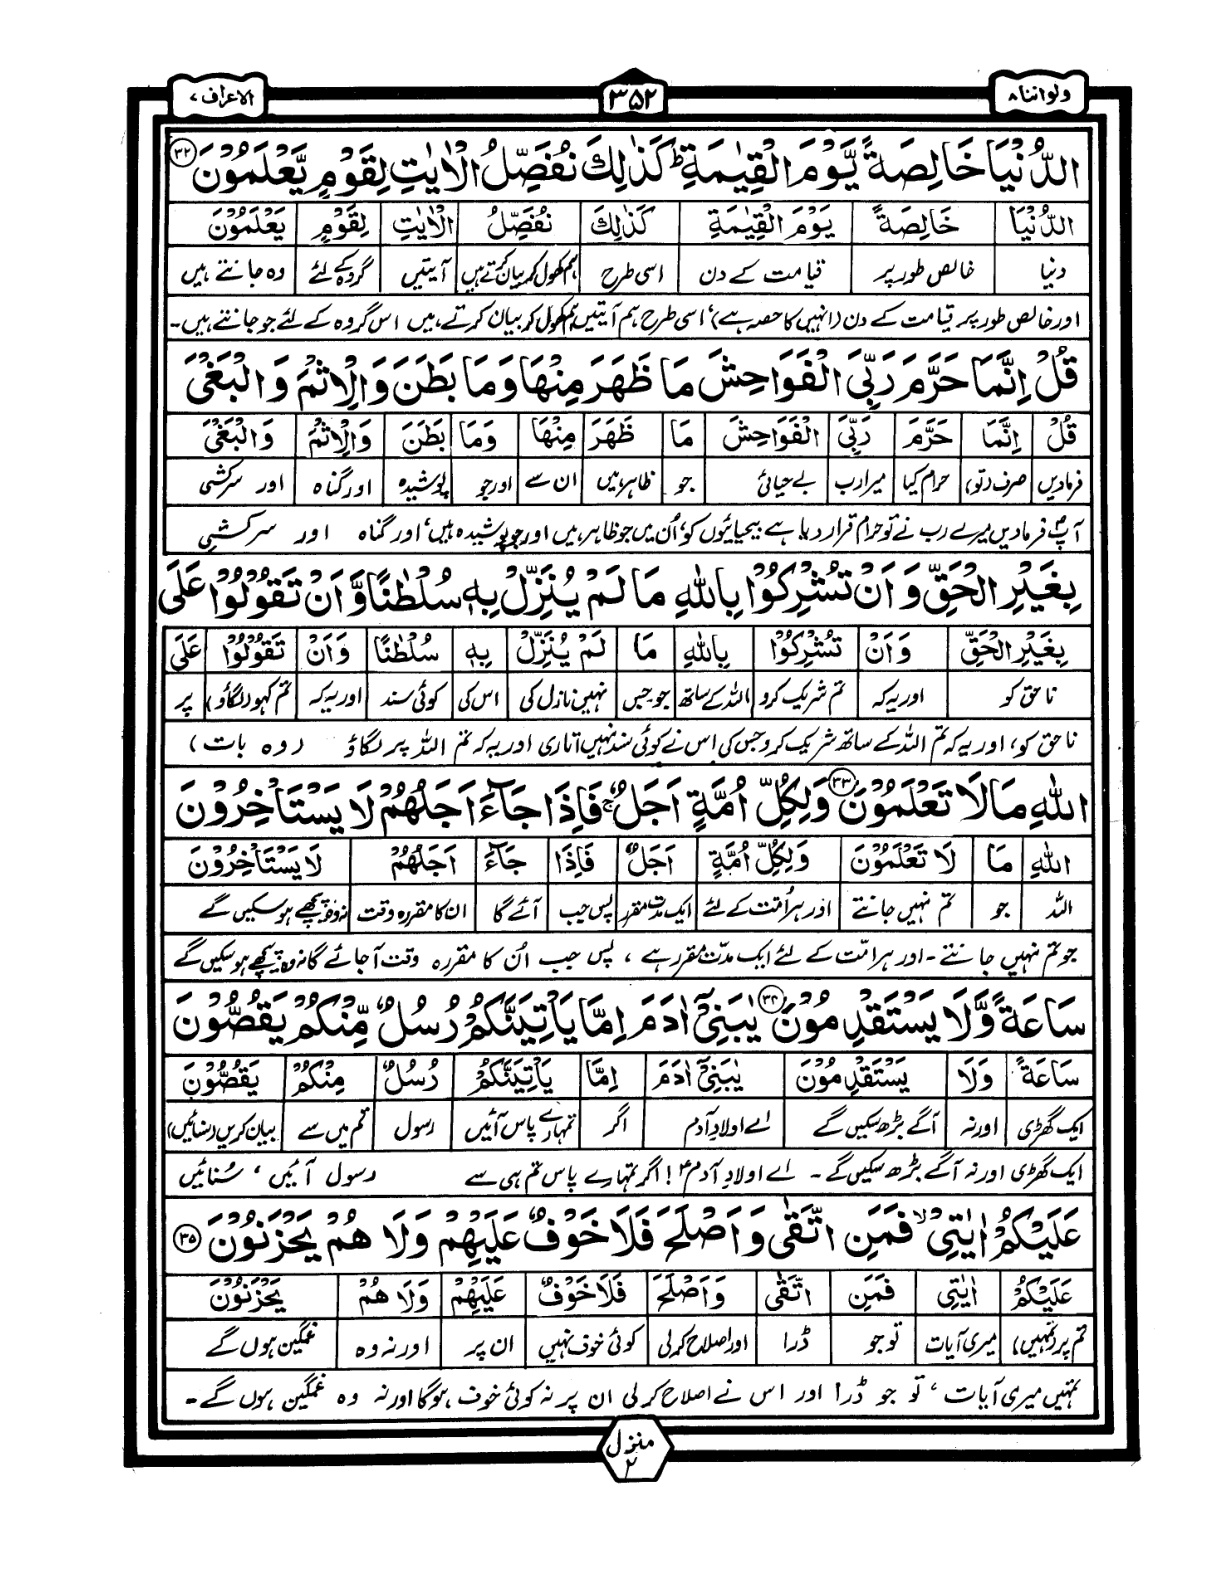 ولواننا ۸
۳۵۲
الاعراف ۷
الدُّنْیَا خَالِصَةً یَّوْمَ الْقِیٰمَةِ ؕ كَذٰلِكَ نُفَصِّلُ الْاٰیٰتِ لِقَوْمٍ یَّعْلَمُوْنَ ۳۲
الدُّنْیَا خَالِصَةً یَوْمَ الْقِیٰمَةِ كَذٰلِكَ نُفَصِّلُ الْاٰیٰتِ لِقَوْمٍ یَعْلَمُوْنَ
دنیا خالص طور پر قیامت کے دن اسی طرح ہم کھول کر بیان کرتے ہیں آیتیں گروہ کے لئے وہ جانتے ہیں
اور خالص طور پر قیامت کے دن (انہیں کا حصہ ہے)، اسی طرح ہم آیتیں کھول کر بیان کرتے ہیں اس گروہ کے لئے جو جانتے ہیں۔
قُلْ اِنَّمَا حَرَّمَ رَبِّیَ الْفَوَاحِشَ مَا ظَهَرَ مِنْهَا وَمَا بَطَنَ وَالْاِثْمَ وَالْبَغْیَ
قُلْ اِنَّمَا حَرَّمَ رَبِّیَ الْفَوَاحِشَ مَا ظَهَرَ مِنْهَا وَمَا بَطَنَ وَالْاِثْمَ وَالْبَغْیَ
فرمادیں صرف (تو) حرام کیا میرا رب بے حیائی جو ظاہر ہیں ان سے اور جو پوشیدہ اور گناہ اور سرکشی
آپ فرمادیں میرے رب نے تو حرام قرار دیا ہے بیحیائیوں کو، اُن میں جو ظاہر ہیں اور جو پوشیدہ ہیں، اور گناہ اور سرکشی
بِغَیْرِ الْحَقِّ وَ اَنْ تُشْرِكُوْا بِاللّٰهِ مَا لَمْ یُنَزِّلْ بِهٖ سُلْطٰنًا وَّ اَنْ تَقُوْلُوْا عَلَی
بِغَیْرِ الْحَقِّ وَاَنْ تُشْرِكُوْا بِاللّٰهِ مَا لَمْ یُنَزِّلْ بِهٖ سُلْطٰنًا وَاَنْ تَقُوْلُوْا عَلَی
ناحق کو اور یہ کہ تم شریک کرو اللہ کے ساتھ جو جس نہیں نازل کی اس کی کوئی سند اور یہ کہ تم کہو (لگاؤ) پر
ناحق کو، اور یہ کہ تم اللہ کے ساتھ شریک کرو جس کی اس نے کوئی سند نہیں اتاری اور یہ کہ تم اللہ پر لگاؤ (وہ بات)
اللّٰهِ مَا لَا تَعْلَمُوْنَ ۳۳ وَلِكُلِّ اُمَّةٍ اَجَلٌ ۚ فَاِذَا جَآءَ اَجَلُهُمْ لَا یَسْتَاْخِرُوْنَ
اللّٰهِ مَا لَا تَعْلَمُوْنَ وَلِكُلِّ اُمَّةٍ اَجَلٌ فَاِذَا جَآءَ اَجَلُهُمْ لَا یَسْتَاْخِرُوْنَ
اللہ جو تم نہیں جانتے اور ہر اُمت کے لئے ایک مدت مقرر پس جب آئے گا ان کا مقررہ وقت نہ وہ پیچھے ہو سکیں گے
جو تم نہیں جانتے۔ اور ہر امت کے لئے ایک مدّت مقرر ہے، پس جب اُن کا مقررہ وقت آجائے گا نہ وہ پیچھے ہو سکیں گے
سَاعَةً وَّلَا یَسْتَقْدِمُوْنَ ۳۴ یٰبَنِیْۤ اٰدَمَ اِمَّا یَاْتِیَنَّكُمْ رُسُلٌ مِّنْكُمْ یَقُصُّوْنَ
سَاعَةً وَلَا یَسْتَقْدِمُوْنَ یٰبَنِیْۤ اٰدَمَ اِمَّا یَاْتِیَنَّكُمْ رُسُلٌ مِنْكُمْ یَقُصُّوْنَ
ایک گھڑی اور نہ آگے بڑھ سکیں گے اے اولادِ آدم اگر تمہارے پاس آئیں رسول تم میں سے بیان کریں (سنائیں)
ایک گھڑی اور نہ آگے بڑھ سکیں گے۔ اے اولادِ آدم! اگر تمہارے پاس تم ہی سے رسول آئیں، سُنائیں
عَلَیْكُمْ اٰیٰتِیْ ۙ فَمَنِ اتَّقٰی وَاَصْلَحَ فَلَا خَوْفٌ عَلَیْهِمْ وَلَا هُمْ یَحْزَنُوْنَ ۳۵
عَلَیْكُمْ اٰیٰتِیْ فَمَنِ اتَّقٰی وَاَصْلَحَ فَلَا خَوْفٌ عَلَیْهِمْ وَلَا هُمْ یَحْزَنُوْنَ
تم پر (تمہیں) میری آیات تو جو ڈرا اور اصلاح کر لی کوئی خوف نہیں ان پر اور نہ وہ غمگین ہوں گے
تمہیں میری آیات، تو جو ڈرا اور اس نے اصلاح کر لی ان پر نہ کوئی خوف ہوگا اور نہ وہ غمگین ہوں گے۔
منزل ۲